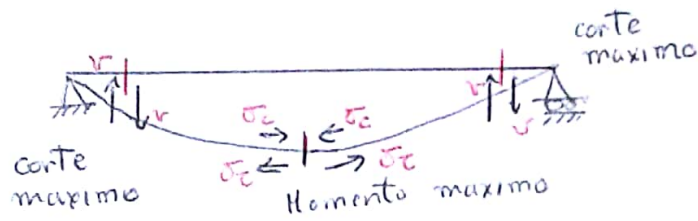 corte
maximo
v
v
v
v
σc
σc
σt
σt
corte
maximo
Momento maximo